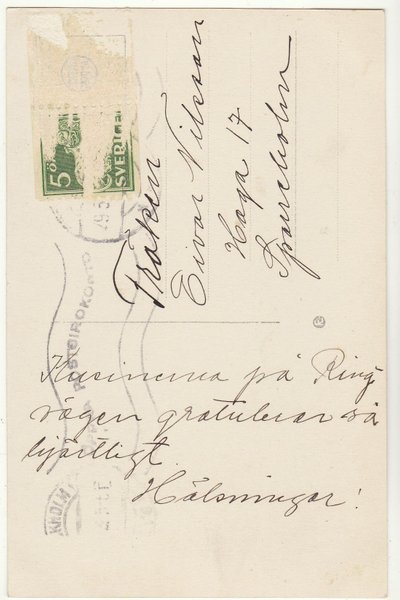 5 ö
SVERIGE
Fröken
Eivor Nilsson
Haga 17
Spånholm
POSTGIROKONTO
Kusinerna på Ring-
vägen gratulerar så
hjärtligt.
Hälsningar!